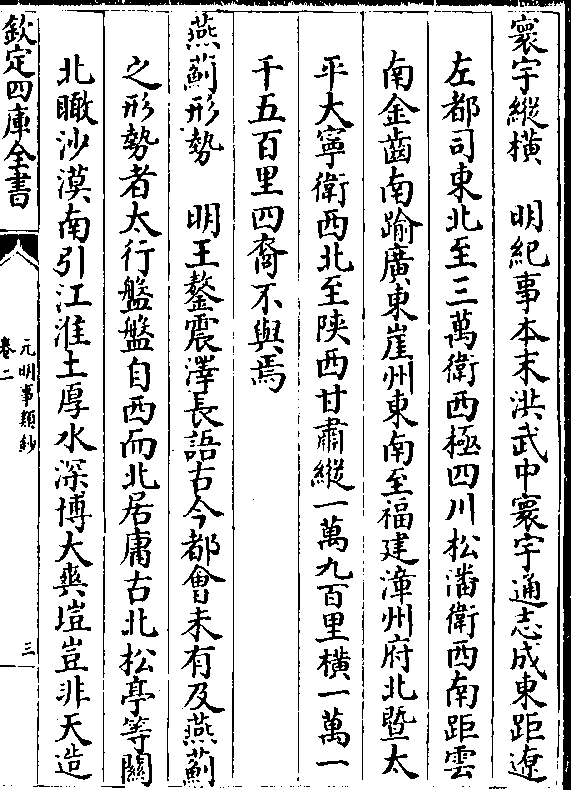 寰宇縱橫　明紀事本末洪武中寰宇通志成東距遼
左都司東北至三萬衛西極四川松潘衛西南距雲
南金齒南踰廣東崖州東南至福建漳州府北暨太
平大寧衛西北至陜西甘肅縱一萬九百里橫一萬一
千五百里四裔不與焉
燕薊形勢　明王鏊震澤長語古今都會未有及燕薊
之形勢者太行盤盤自西而北居庸古北松亭等關
北瞰沙漠南引江淮土厚水深博大爽塏豈非天造
欽定四庫全書
元明事類鈔
卷二
三